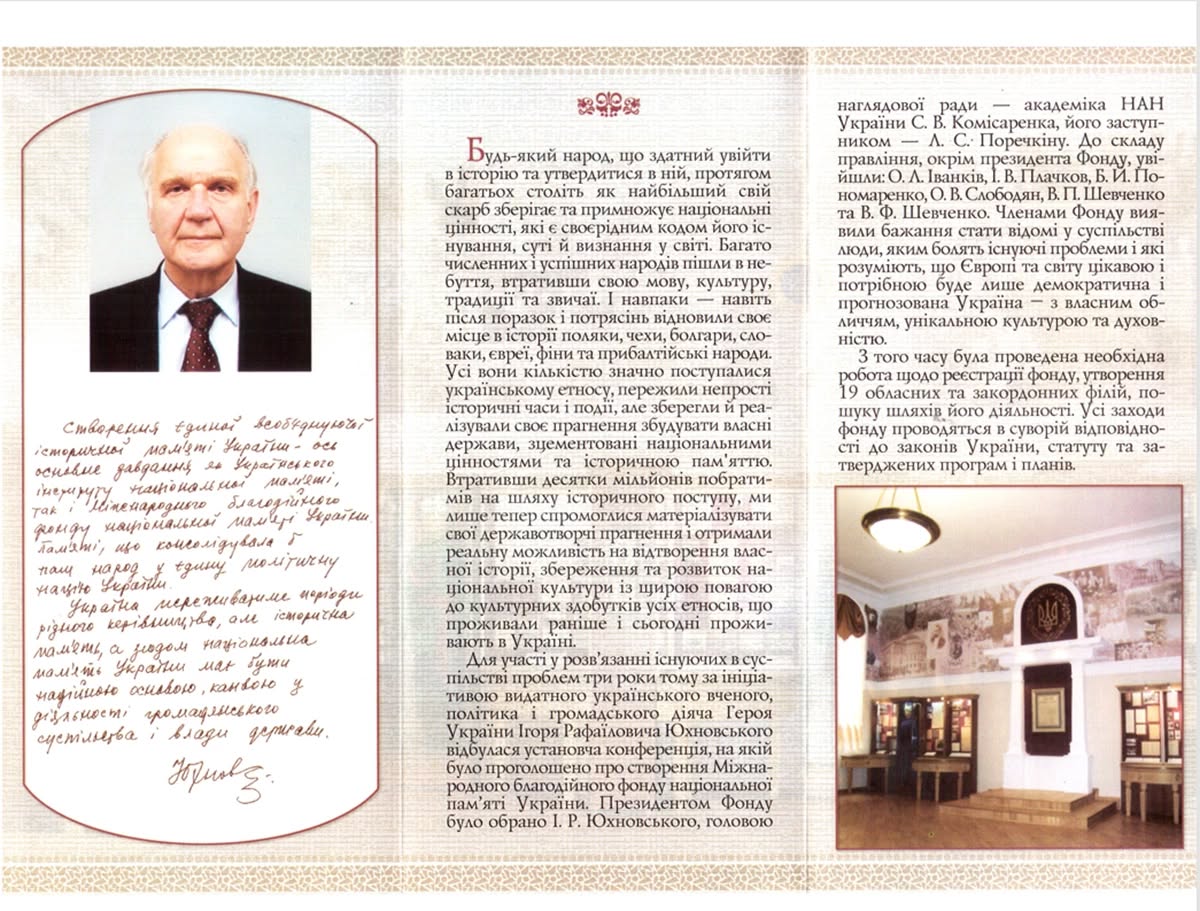 Створення єдиної всеоб'єднуючої
історичної пам'яті України – ось
основне завдання як Українського
інституту національної пам'яті,
так і Міжнародного благодійного
фонду національної пам'яті України.
Пам'яті, що консолідувала б
наш народ у єдину політичну
націю України.
Україна переживатиме періоди
різного керівництва, але історична
пам'ять, а згодом національна
пам'ять України має бути
надійною основою, канвою у
діяльності громадянського
суспільства і влади держави.
Будь-який народ, що здатний увійти
в історію та утвердитися в ній, протягом
багатьох століть як найбільший свій
скарб зберігає та примножує національні
цінності, які є своєрідним кодом його іс-
нування, суті й визнання у світі. Багато
численних і успішних народів пішли в не-
буття, втративши свою мову, культуру,
традиції та звичаї. І навпаки — навіть
після поразок і потрясінь відновили своє
місце в історії поляки, чехи, болгари, сло-
ваки, євреї, фіни та прибалтійські народи.
Усі вони кількістю значно поступалися
українському етносу, пережили непрості
історичні часи і події, але зберегли й реа-
лізували своє прагнення збудувати власні
держави, зцементовані національними
цінностями та історичною пам'яттю.
Втративши десятки мільйонів побрати-
мів на шляху історичного поступу, ми
лише тепер спромоглися матеріалізувати
свої державотворчі прагнення і отримали
реальну можливість на відтворення влас-
ної історії, збереження та розвиток на-
ціональної культури із щирою повагою
до культурних здобутків усіх етносів, що
проживали раніше і сьогодні прожи-
вають в Україні.
Для участі у розв'язанні існуючих в сус-
пільстві проблем три роки тому за ініціа-
тивою видатного українського вченого,
політика і громадського діяча Героя
України Ігоря Рафаїловича Юхновського
відбулася установча конференція, на якій
було проголошено про створення Міжна-
родного благодійного фонду національної
пам'яті України. Президентом Фонду
було обрано І. Р. Юхновського, головою
наглядової ради — академіка НАН
України С. В. Комісаренка, його заступ-
ником — Л. С. Поречкіну. До складу
правління, окрім президента Фонду, уві-
йшли: О. Л. Іванків, І. В. Плачков, Б. Й. По-
номаренко, О. В. Слободян, В. П. Шевченко
та В. Ф. Шевченко. Членами Фонду вия-
вили бажання стати відомі у суспільстві
люди, яким болять існуючі проблеми і які
розуміють, що Європі та світу цікавою і
потрібною буде лише демократична і
прогнозована Україна – з власним об-
личчям, унікальною культурою та духов-
ністю.
З того часу була проведена необхідна
робота щодо реєстрації фонду, утворення
19 обласних та закордонних філій, по-
шуку шляхів його діяльності. Усі заходи
фонду проводяться в суворій відповідно-
сті до законів України, статуту та за-
тверджених програм і планів.